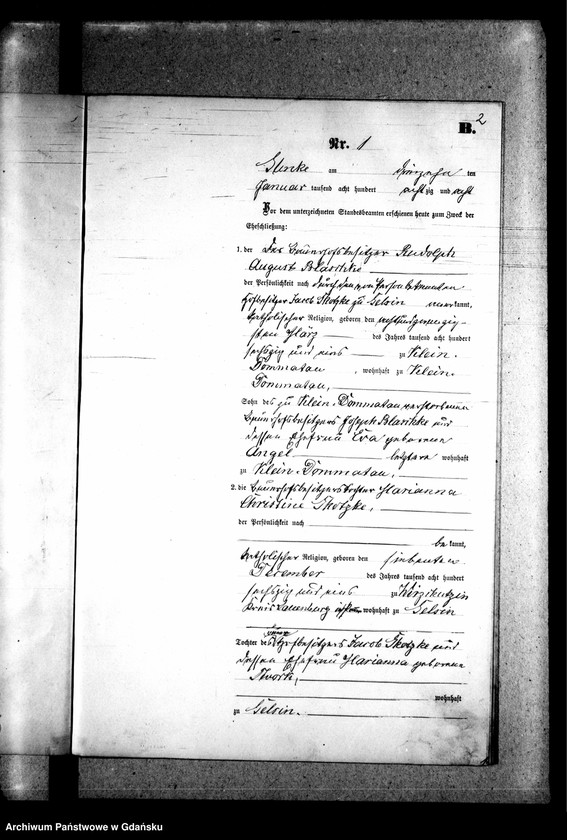 2
B.
Nr. 1
Glinke am vierzehn ten
Januar tausend acht hundert achtzig und acht
Vor dem unterzeichneten Standesbeamten erschienen heute zum Zweck der
Eheschließung:
1. der Bauerhofsbesitzer Rudolph
August Blaschke
der Persönlichkeit nach durch den von Person bekannten
Hofbesitzer Jacob Skotzke zu Gelsin anerkannt,
katholischer Religion, geboren den
sten März des Jahres tausend acht hundert
sechszig und eins zu Klein-
Dommatau, wohnhaft zu Klein-
Dommatau,
Sohn des zu Klein-Dommatau verstorbenen
Bauerhofsbesitzers Joseph Blaschke und
dessen Ehefrau Eva geborene
Angel letztere wohnhaft
zu Klein-Dommatau,
2. die Bauerhofsbesitzerstochter Marianna
Christine Skotzke,
der Persönlichkeit nach
bekannt,
katholischer Religion, geboren den siebenten
December des Jahres tausend acht hundert
sechszig und eins zu
Kreis Lauenburg wohnhaft zu Gelsin
Tochter des Hofbesitzers Jacob Skotzke und
dessen Ehefrau Marianna geborene
wohnhaft
zu Gelsin.
Archiwum Państwowe w Gdańsku